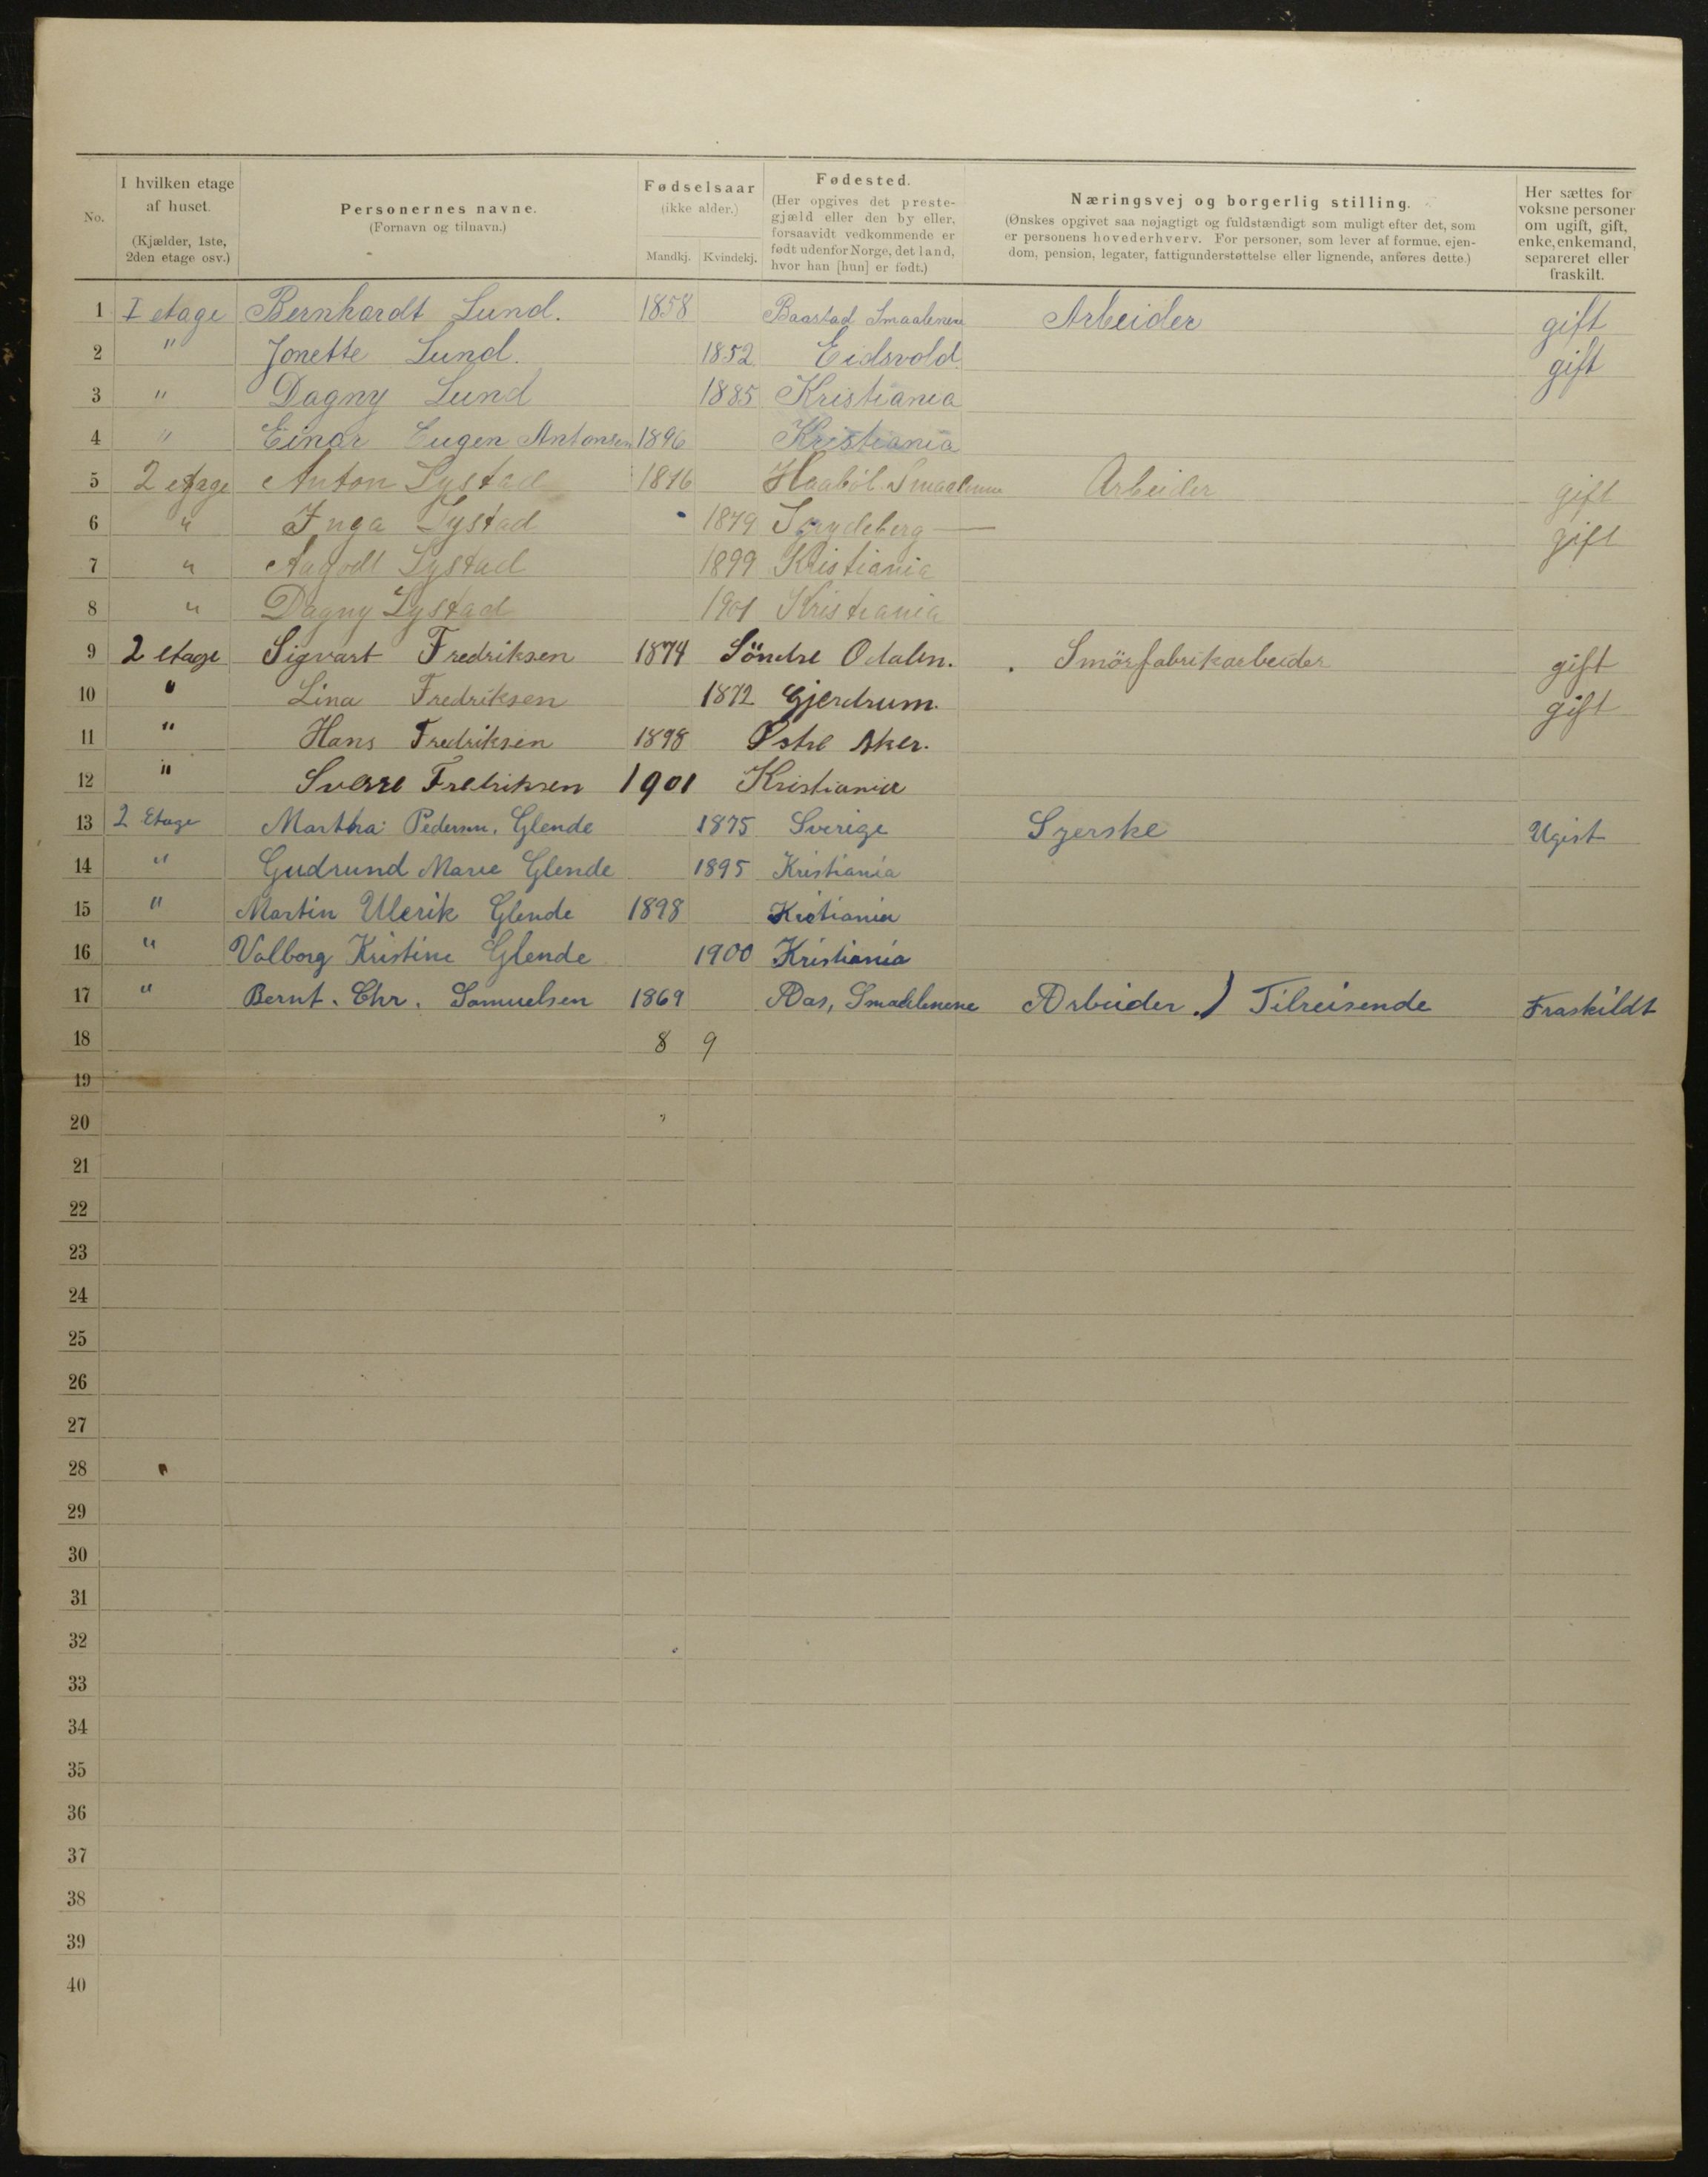 No. | I hvilken etage af huset. (Kjælder, 1ste, 2den etage osv.) | Personernes navne. (Fornavn og tilnavn.) | Fødselsaar (ikke alder.) Mandkj. Kvindekj. | Fødested. (Her opgives det prestegjæld eller den by eller, forsaavidt vedkommende er født udenfor Norge, det land, hvor han [hun] er født.) | Næringsvej og borgerlig stilling. (Ønskes opgivet saa nøjagtigt og fuldstændigt som muligt efter det, som er personens hovederhverv. For personer, som lever af formue, ejendom, pension, legater, fattigunderstøttelse eller lignende, anføres dette.) | Her sættes for voksne personer om ugift, gift, enke, enkemand, separeret eller fraskilt.
1 I etage Bernhardt Lund. 1858 Baastad Smaalenene Arbeider gift
2 " Jonette Lund. 1852 Eidsvold gift
3 " Dagny Lund 1885 Kristiania
4 " Einar Eugen Antonsen 1896 Kristiania
5 2 etage Anton Lystad 1876 Haaböl Smaalenene Arbeider gift
6 " Inga Lystad 1879 gift
7 " Lystad 1899 Kristiania
8 " Dagny Lystad 1901 Kristiania
9 2 etage Sigvart Fredriksen 1874 Söndre Odalen. Smörfabrikarbeider gift
10 " Lina Fredriksen 1872 Gjerdrum. gift
11 " Hans Fredriksen 1898 Østre Aker.
12 " Sverre Fredriksen 1901 Kristiania
13 2 Etage Martha Pedersen. Glende 1875 Sverige Syerske Ugift
14 " Gudrund Marie Glende 1895 Kristiania
15 " Martin Ulerik Glende 1898 Kristiania
16 " Valborg Kristine Glende 1900 Kristiania
17 " Bernt. Chr. Samuelsen 1869 Aas, Smaalenene Arbeider.) Tilreisende Fraskildt
18 8 9
19
20
21
22
23
24
25
26
27
28
29
30
31
32
33
34
35
36
37
38
39
40